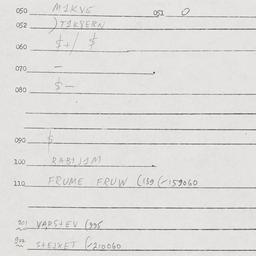 050 M1KVE 051 0
052 )T1KSERN
060 $+/ $
070 —
080 $—
090 $
100 RABIJIM
110 FRUME FRUW (139 (-159060
201 VAPSTEV (995
202 STEJXET (-210060